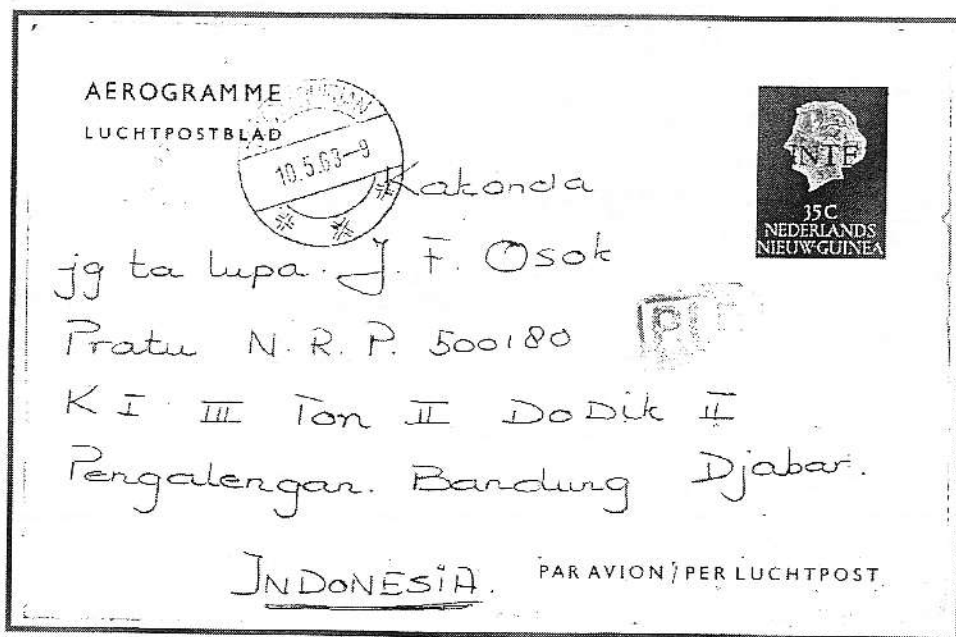 AEROGRAMME
LUCHTPOSTBLAD
10.5.63-9
35C
NEDERLANDS
NIEUW-GUINEA
Kakonda
jg ta lupa. J. F. Osok
Pratu N. R. P. 500180
K I III Ton II DoDik II
Pengalengan. Bandung Djabar.
INDONESIA.
PAR AVION/PER LUCHTPOST